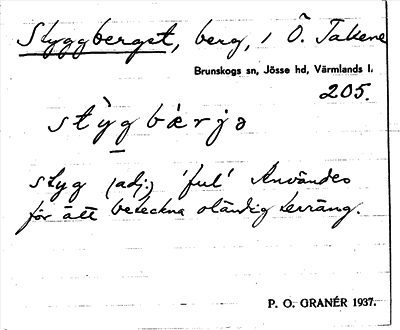 Styggberget, berg, i Ö. Takene
Brunskogs sn, Jösse hd, Värmlands l.
205.
stỳg bærjə
styg (adj.) 'ful' Användes
för att beteckna oländig terräng.
P. O. GRANÉR 1937.